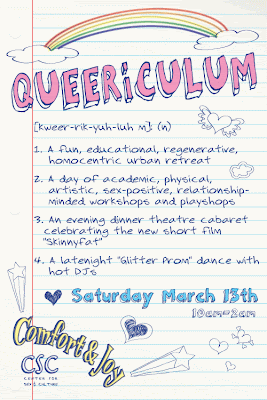 QUEERiCULUM
[kweer-rik-yuh-luh m]: (n)
1. A fun, educational, regenerative,
homocentric urban retreat
2. A day of academic, physical,
artistic, sex-positive, relationship-
minded workshops and playshops
3. An evening dinner theatre cabaret
celebrating the new short film
"Skinnyfat"
4. A latenight "Glitter Prom" dance with
hot DJ's
Saturday March 13th
10am-2am
Comfort & Joy
CSC
CENTER FOR
SEX & CULTURE